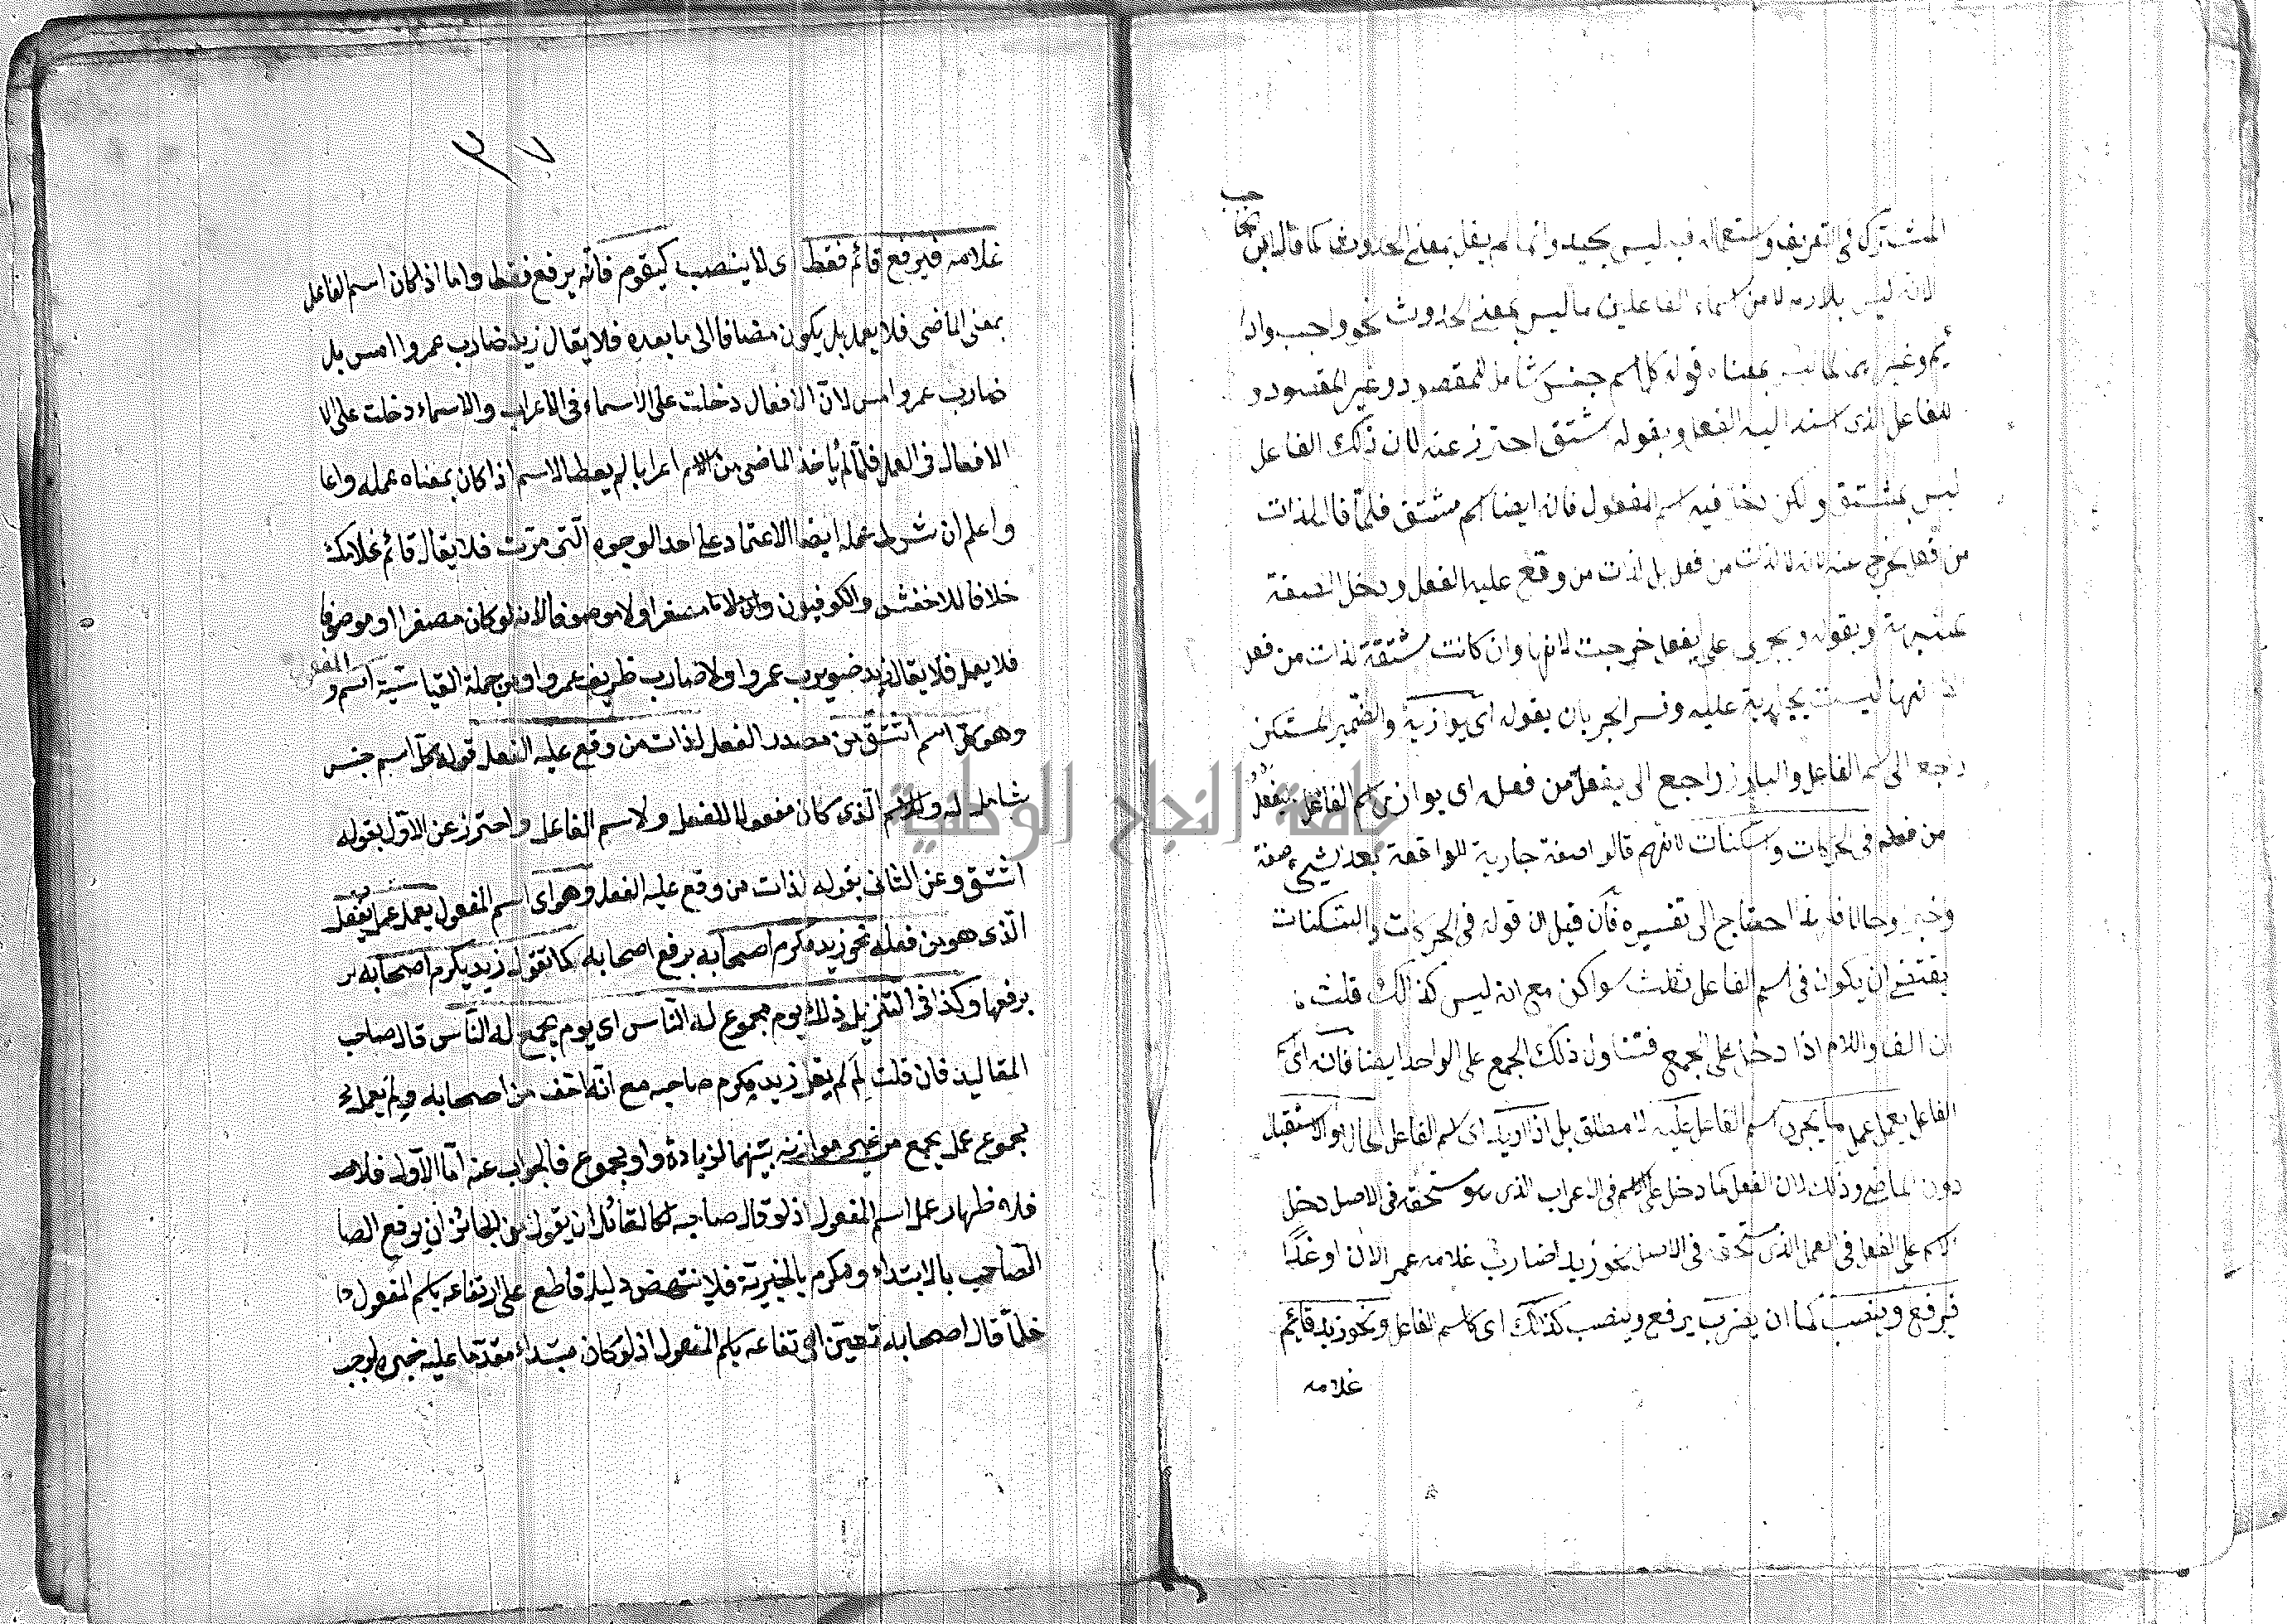 المشترك في التعريف واستعماله فيه ليس بجيد وانما لم يقل بمعنى الحدوث كما قال ابن الحاجب
لانه ليس بلازم لا من اسماء الفاعلين ما ليس بمعنى الحدوث نحو واجب ودا
ئم وغير بمعناه قوله كل اسم جنس شامل للمقصود وغير المقصود و
للفاعل الذى اسند اليه الفعل وبقوله اشتق احترز عنه لان ذلك الفاعل
ليس بمشتق ولكن دخل فيه اسم المفعول فانه ايضا اسم مشتق فلما قال لذات
من فعل يخرج عنه لانه لا لذات من فعل بل لذات من وقع عليه الفعل ودخل الصفة
المشبهة وبقوله ويجرى على يفعل خرجت لانها وان كانت مشتقة لذات من فعل
الا انها ليست بجارية عليه وفسر الجريان بقوله اى يوازنه والضمير المستكن
راجع الى اسم الفاعل والبارز راجع الى يفعل من فعله اى يوازن اسم الفاعل يفعل
من فعله في الحركات والسكنات لانهم قالوا صفة جارية للواقعة بعد الشيء صفة
وخبرا وحالا فلهذا احتاج الى تفسيره فان قيل ان قوله في الحركات والسكنات
يقتضى ان يكون في اسم الفاعل ثلث سواكن مع انه ليس كذالك قلت
ان الف واللام اذا دخل على الجمع فتناول ذلك الجمع على الواحد ايضا فانه اى
الفاعل يعمل عمل ما يجرى اسم الفاعل عليه لا مطلق بل اذا اريد اى اسم الفاعل الحال او الاستقبال
دون الماضى وذلك لان الفعل كما دخل على الاسم في الاعراب الذى هو مستحقه في الاصل دخل
الاسم على الفعل في العمل الذى مستحقه في الاصل نحو زيد ضارب غلامه عمرا الان او غدا
فيرفع وينصب كما ان يضرب يرفع وينصب كذلك اى كاسم الفاعل ونحو زيد قائم
غلامه
٣٧
غلامه فيرفع قائم فقط اى لا ينصب كيقوم فانه يرفع فقط واما اذا كان اسم الفاعل
بمعنى الماضى فلا يعمل بل يكون مضافا الى ما بعده فلا يقال زيد ضارب عمروا امس بل
ضارب عمرو امس لان الافعال دخلت على الاسماء في الاعراب والاسماء دخلت على الا
الافعال في العمل فلما لم يأخذ الماضى من الاسم اعرابا لم يعط الاسم اذا كان بمعناه عمله واعا
واعلم ان شرط عمله ايضا الاعتماد على احد الوجوه التى مرت فلا يقال قائم غلامك
خلافا للاخفش والكوفيون وان لا مصغرا ولا موصوفا لانه لو كان مصغرا او موصوفا
فلا يعمل فلا يقال زيد ضويرب عمروا ولا ضارب ظريف عمروا ومن جملة القياسية اسم و المفعول
وهو كل اسم اشتق من مصدر الفعل لذات من وقع عليه الفعل قوله كل اسم جنس
شامل له وللاسم الذى كان مفعولا للفعل ولاسم الفاعل واحترز عن الاول بقوله
اشتق وعن الثانى بقوله لذات من وقع عليه الفعل وهو اى اسم المفعول يعمل عمل يفعل
الذى هو من فعله نحو زيد مكرم اصحابه برفع اصحابه كما تقول زيد يكرم اصحابه بر
برفعها وكذا في التنزيل ذلك يوم مجموع له الناس اى يوم يجمع له الناس قال صاحب
المقاليد فان قلت لم لم يقل زيد مكرم صاحبه مع انه اخف من اصحابه ولم يعمل
مجموع عمل يجمع من غير موازنه بينهما لزيادة واو مجموع فالجواب عنه اما الاول فلا
فلاظهار عمل اسم المفعول اذ لو قال صاحبه لكا لقائل ان يقول من الجائز ان يرفع الصا
الصاحب بالابتداء ومكرم بالخبرية فلا ينتهض دليلا قاطع على ارتفاعه باسم المفعول
فلما قال اصحابه تعين ارتفاعه باسم المفعول اذ لو كان مبتداء مقدما عليه خبره لوجب